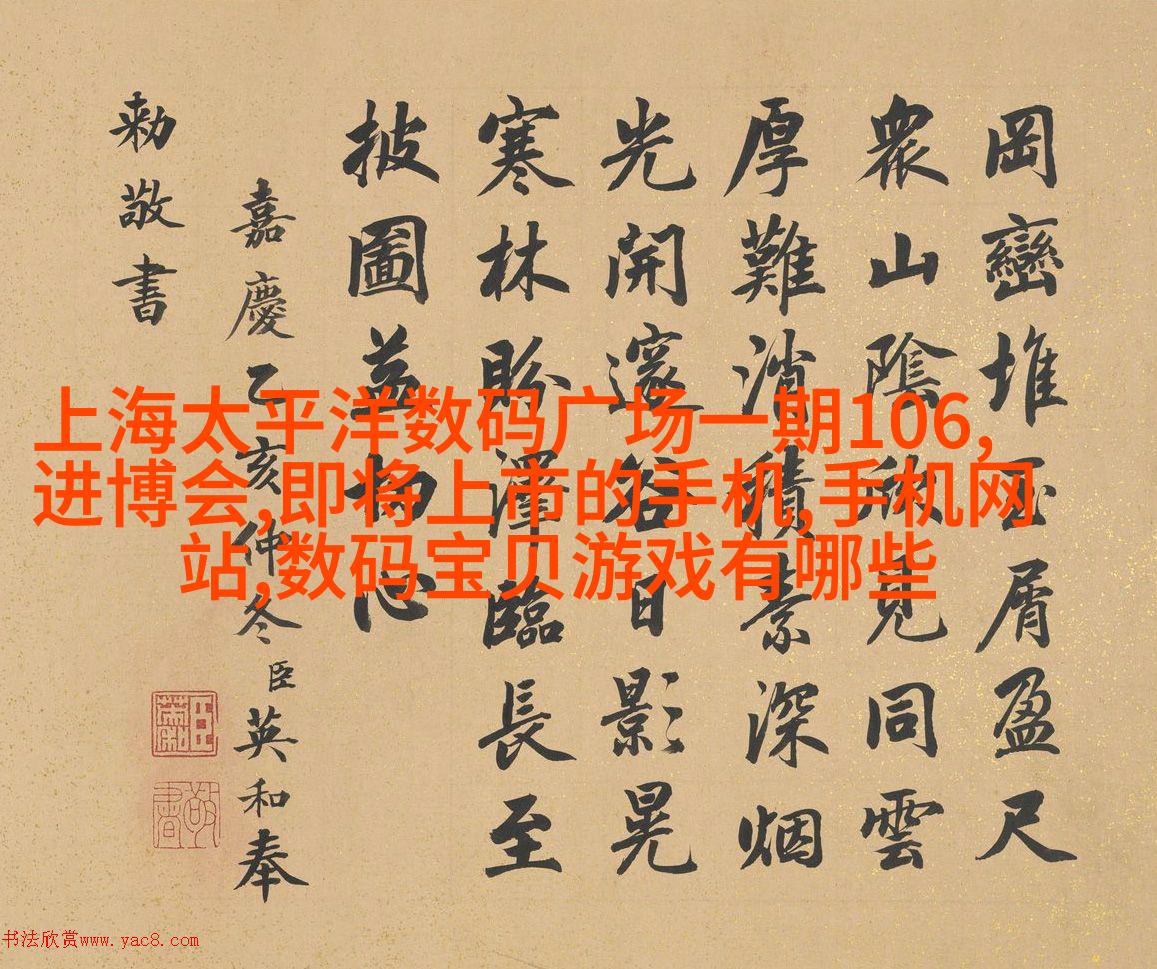 岡巒堆玉屑盈尺
衆山陰欣見同雲
厚難消積素深烟
光開邃谷日影晃
寒林盼澤臨長至
披圖益心
嘉慶乙亥仲冬臣英和奉
勅敬書
上海太平洋数码广场一期106,
进博会,即将上市的手机,手机网
站,数码宝贝游戏有哪些
敬書
书法欣赏www.yac8.com